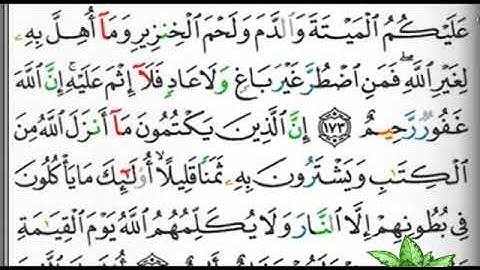 عَلَيْكُمُ ٱلْمَيْتَةَ وَٱلدَّمَ وَلَحْمَ ٱلْخِنزِيرِ وَمَآ أُهِلَّ بِهِۦ
لِغَيْرِ ٱللَّهِۖ فَمَنِ ٱضْطُرَّ غَيْرَ بَاغٍ وَلَا عَادٍ فَلَآ إِثْمَ عَلَيْهِۚ إِنَّ ٱللَّهَ
غَفُورٌ رَّحِيمٌ ١٧٣ إِنَّ ٱلَّذِينَ يَكْتُمُونَ مَآ أَنزَلَ ٱللَّهُ مِنَ
ٱلْكِتَٰبِ وَيَشْتَرُونَ بِهِۦ ثَمَنًا قَلِيلًاۙ أُو۟لَٰٓئِكَ مَا يَأْكُلُونَ
فِى بُطُونِهِمْ إِلَّا ٱلنَّارَ وَلَا يُكَلِّمُهُمُ ٱللَّهُ يَوْمَ ٱلْقِيَٰمَةِ